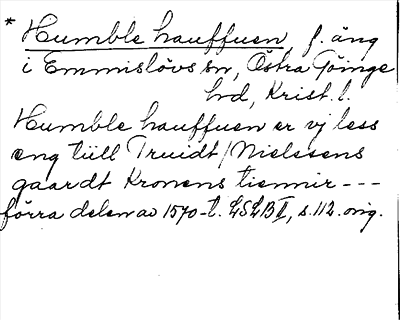 * Humble hauffuen, f. äng
i Emmislövs sn, Östra Göinge
hd, Krist. l.
Humble hauffuen er vj less
eng tiill Truidt Nielssens
gaardt Kronens tiennir ---
förra delen av 1570-t. LSLB II, s. 112. orig.